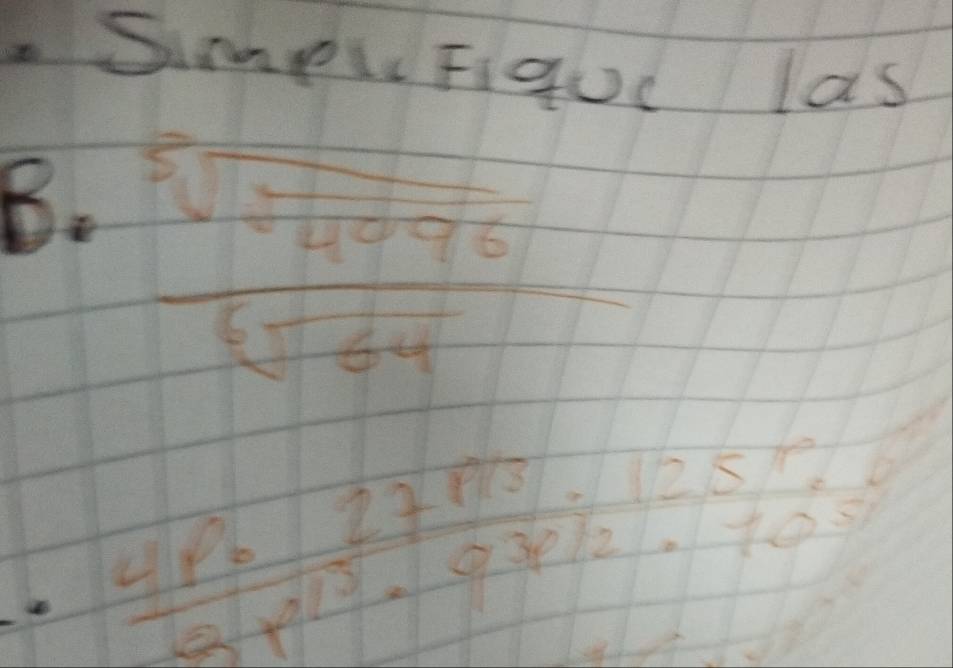 Simplifique las
B. 5√√4096
6√64
4p. 27p/3 . 125p . 6
8p/3 . 93p/2 . 105